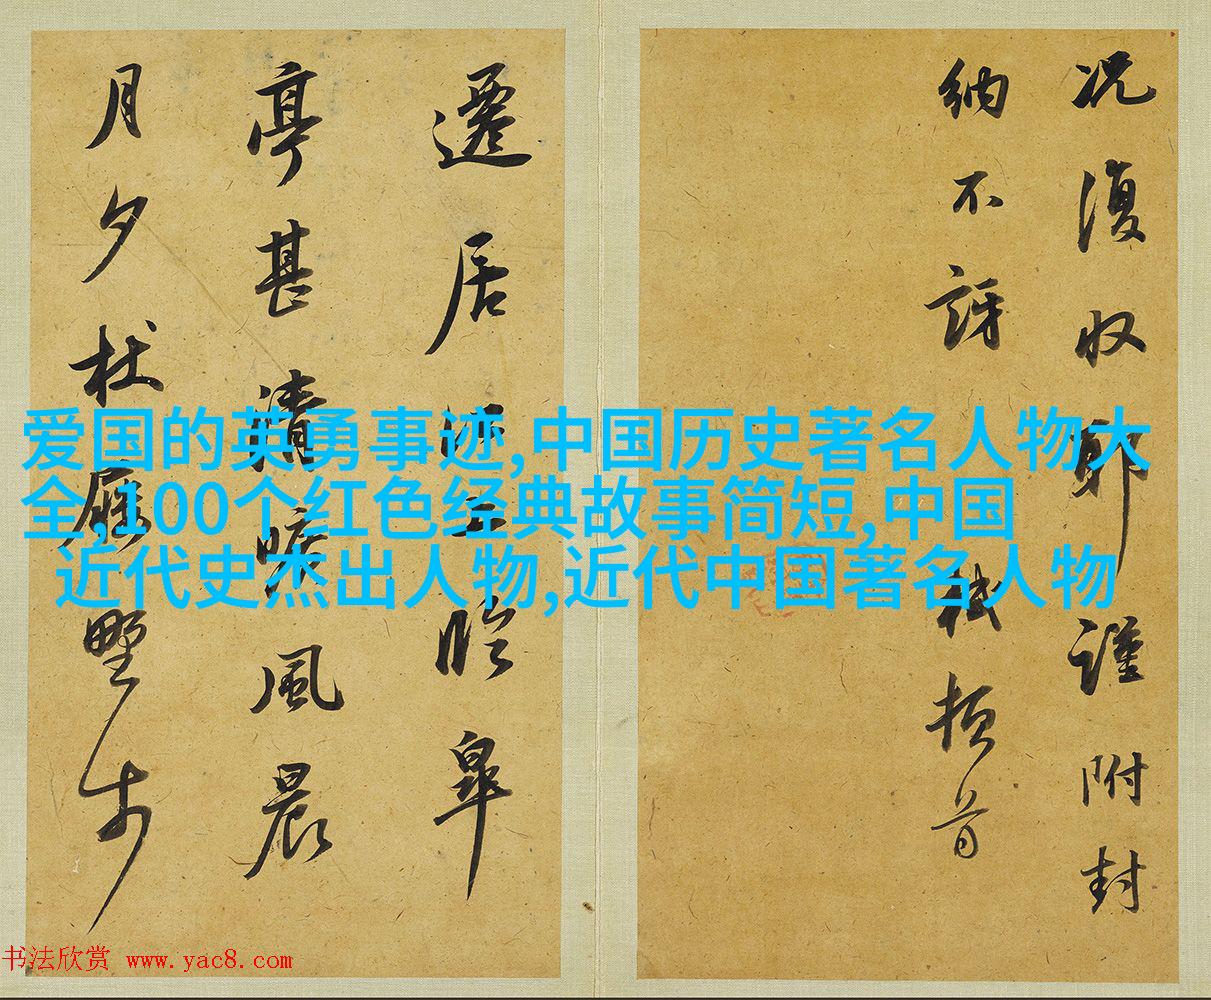 况復収耶謹附封
納不訝軾頓首
遷居江上臨皋
亭甚清曠風晨
月夕杖屨野步
爱国的英勇事迹,中国历史著名人物大
全,100个红色经典故事简短,中国
近代史杰出人物,近代中国著名人物
书法欣赏 www.yac8.com